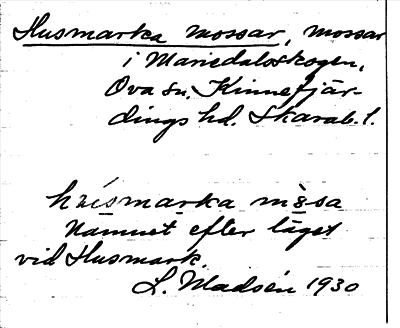 Husmarka mossar, mossar
i Mariedalsskogen,
Ova sn, Kinnefjär-
dings hd. Skarab. l.
husmarka måsa
Namnet efter läget
vid Husmark.
L. Madsén 1930